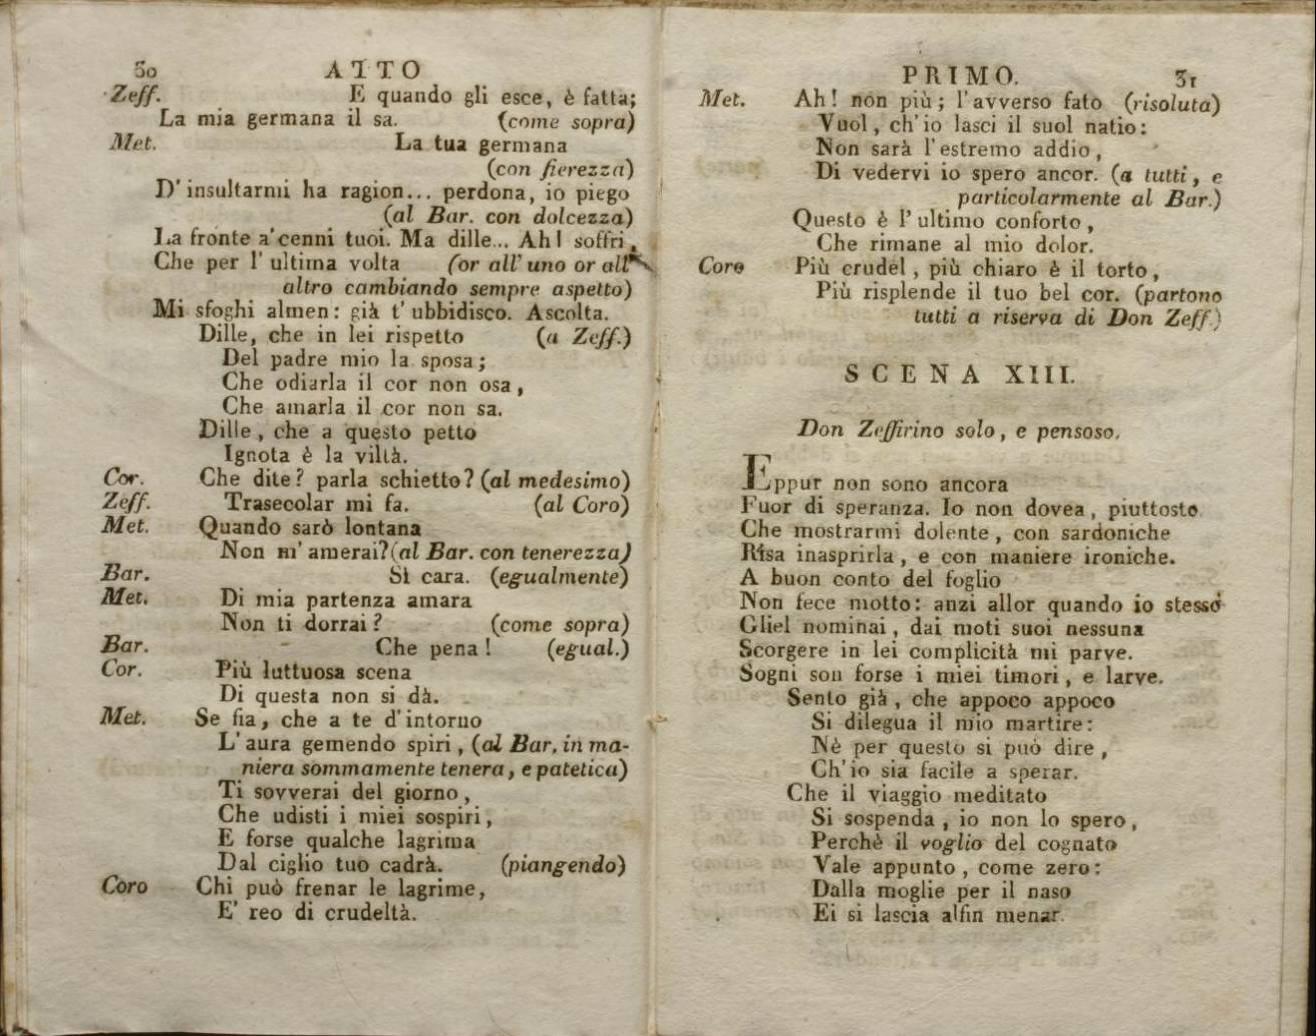 30 ATTO
Zeff. E quando gli esce, è fatta;
La mia germana il sa. (come sopra)
Met. La tua germana
(con fierezza)
D'insultarmi ha ragion... perdona, io piego
(al Bar. con dolcezza)
La fronte a'cenni tuoi. Ma dille... Ah! soffri,
Che per l'ultima volta (or all'uno or all'
altro cambiando sempre aspetto)
Mi sfoghi almen: già t'ubbidisco. Ascolta.
Dille, che in lei rispetto (a Zeff.)
Del padre mio la sposa;
Che odiarla il cor non osa,
Che amarla il cor non sa.
Dille, che a questo petto
Ignota è la viltà.
Cor. Che dite? parla schietto? (al medesimo)
Zeff. Trasecolar mi fa. (al Coro)
Met. Quando sarò lontana
Non m'amerai? (al Bar. con tenerezza)
Bar. Sì cara. (egualmente)
Met. Di mia partenza amara
Non ti dorrai? (come sopra)
Bar. Che pena! (egual.)
Cor. Più luttuosa scena
Di questa non si dà.
Met. Se fia, che a te d'intorno
L'aura gemendo spiri, (al Bar. in ma-
niera sommamente tenera, e patetica)
Ti sovverai del giorno,
Che udisti i miei sospiri,
E forse qualche lagrima
Dal ciglio tuo cadrà. (piangendo)
Coro Chi può frenar le lagrime,
E' reo di crudeltà.
PRIMO. 31
Met. Ah! non più; l'avverso fato (risoluta)
Vuol, ch'io lasci il suol natio:
Non sarà l'estremo addio,
Di vedervi io spero ancor. (a tutti, e
particolarmente al Bar.)
Questo è l'ultimo conforto,
Che rimane al mio dolor.
Coro Più crudel, più chiaro è il torto,
Più risplende il tuo bel cor. (partono
tutti a riserva di Don Zeff.)
SCENA XIII.
Don Zeffirino solo, e pensoso.
Eppur non sono ancora
Fuor di speranza. Io non dovea, piuttosto
Che mostrarmi dolente, con sardoniche
Risa inasprirla, e con maniere ironiche.
A buon conto del foglio
Non fece motto: anzi allor quando io stesso
Gliel nominai, dai moti suoi nessuna
Scorgere in lei complicità mi parve.
Sogni son forse i miei timori, e larve.
Sento già, che appoco appoco
Si dilegua il mio martire:
Nè per questo si può dire,
Ch'io sia facile a sperar.
Che il viaggio meditato
Si sospenda, io non lo spero,
Perchè il voglio del cognato
Vale appunto, come zero:
Dalla moglie per il naso
Ei si lascia alfin menar.